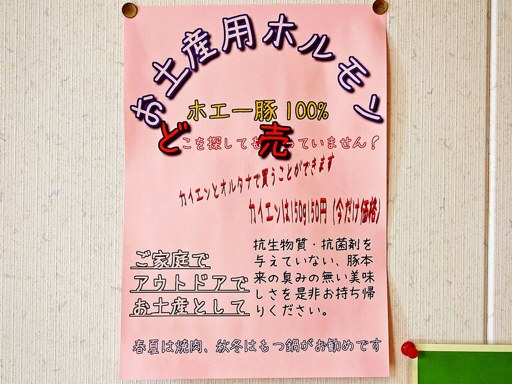 お土産用ホルモン
ホエー豚100%
どこを探しても売っていません！
カイエンとオルタナで買うことができます
カイエンは150g150円（今だけ価格）
ご家庭で
アウトドアで
お土産として
抗生物質・抗菌剤を
与えていない、豚本
来の臭みの無い美味
しさを是非お持ち帰
りください。
春夏は焼肉、秋冬はもつ鍋がお勧めです